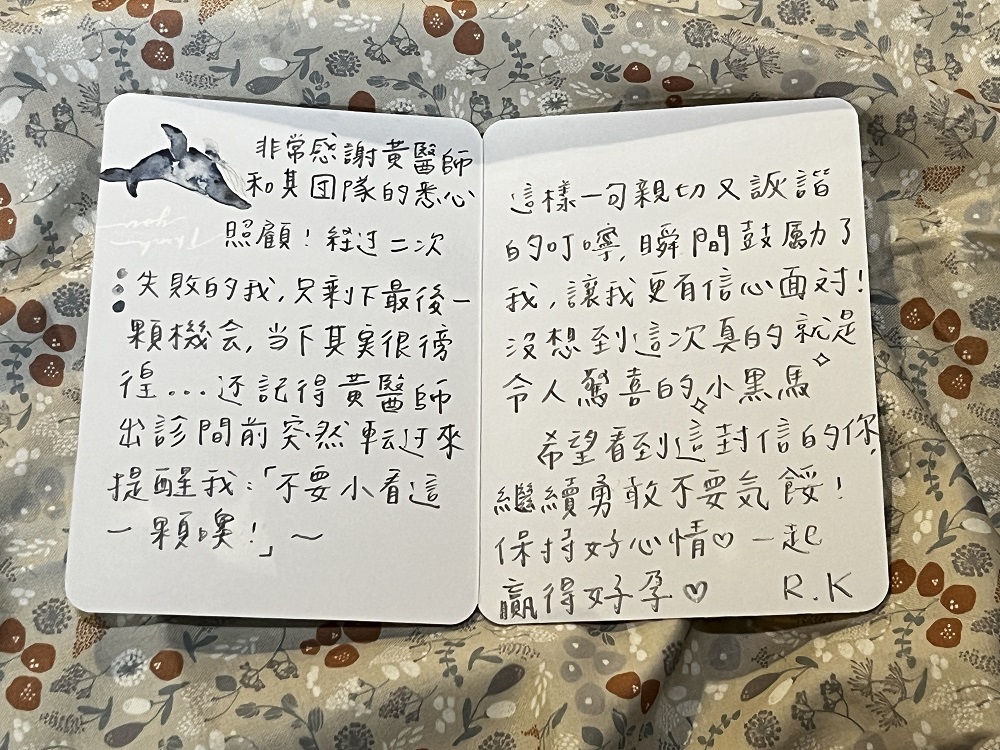 非常感謝黃醫師
和其团隊的悉心
照顧！経过二次
Thank
you
失敗的我，只剩下最後一
顆機会，当下其实很徬
徨...还記得黃醫師
出診間前突然転过來
提醒我：「不要小看這
一顆噢！」～
這樣一句親切又詼諧
的叮嚀，瞬間鼓勵了
我，讓我更有信心面对！
沒想到這次真的就是
令人驚喜的小黑馬
希望看到這封信的你，
繼續勇敢不要気餒！
保持好心情♡一起
贏得好孕♡ R.K